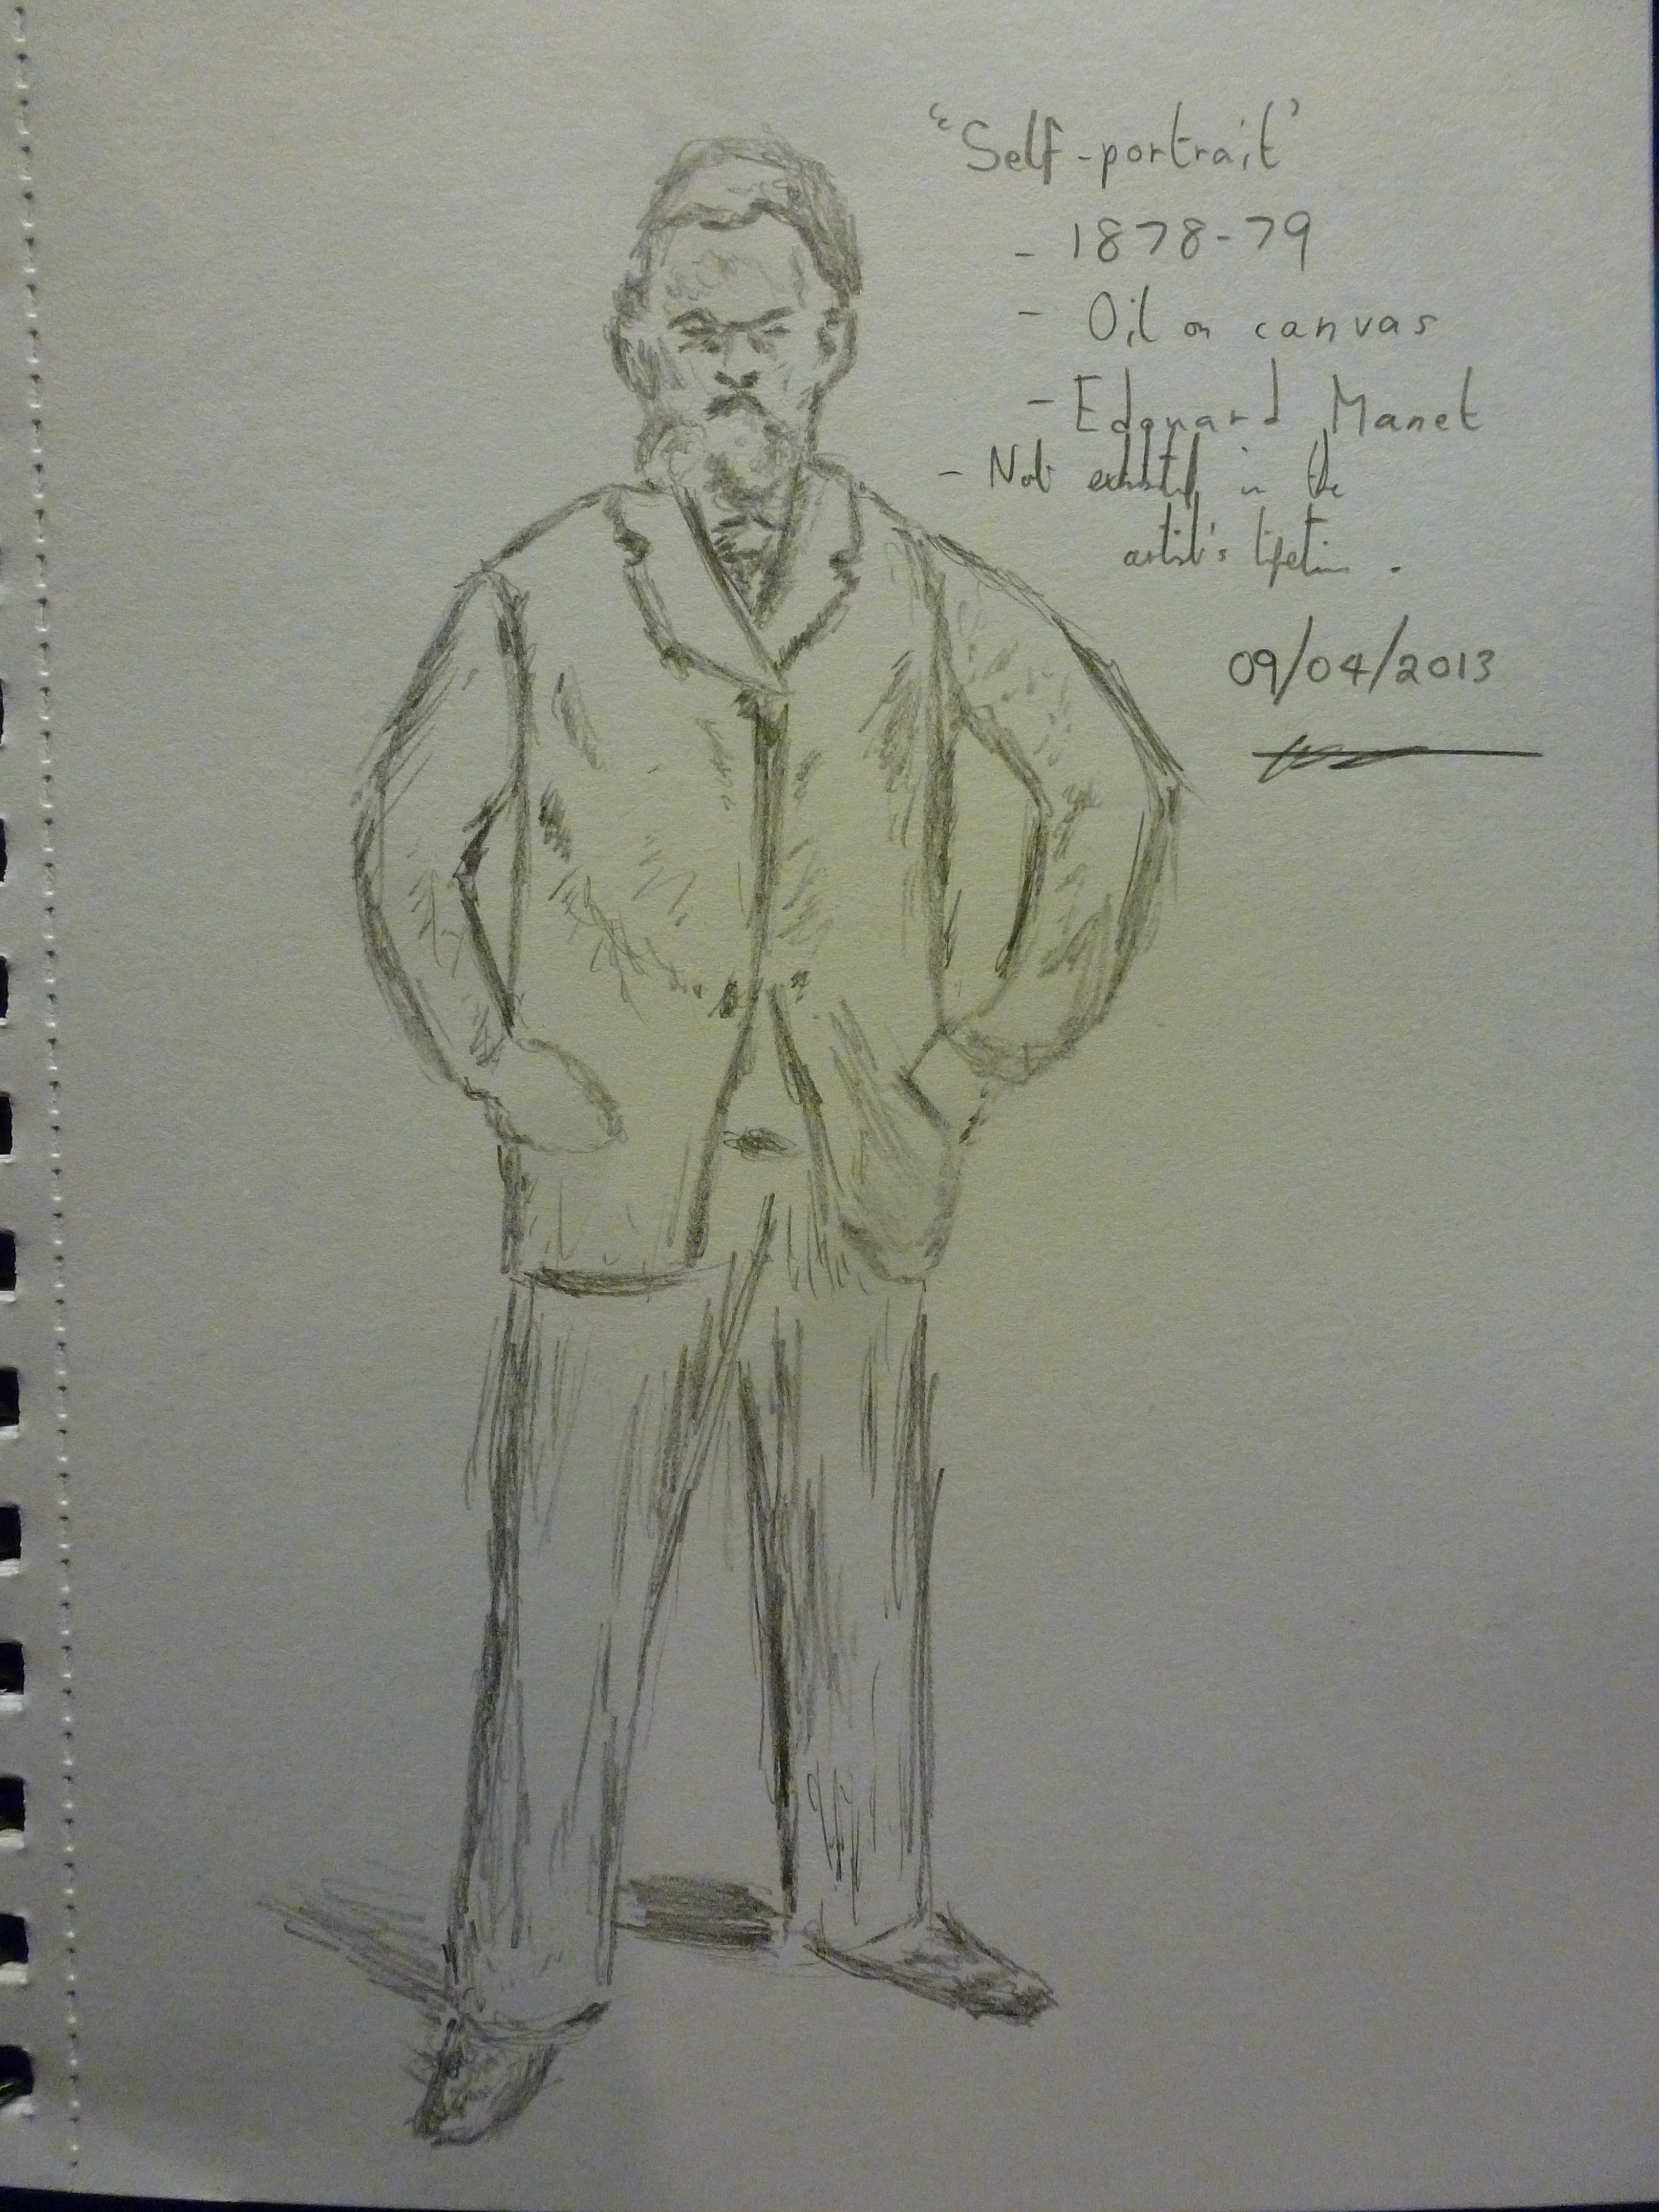 "Self-portrait"
- 1878-79
- Oil on canvas
- Edouard Manet
- Not exhibited in the
artist's lifetime.
09/04/2013